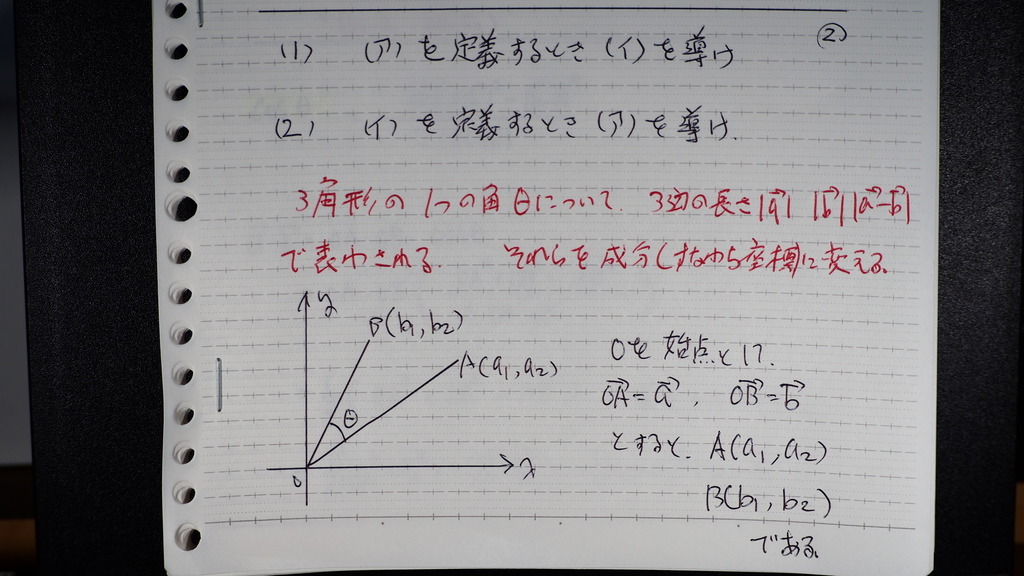 ②
(1) (ア)を定義するとき(イ)を導け
(2) (イ)を定義するとき(ア)を導け.
3角形の1つの角θについて. 3辺の長さ|a→| |b→| |a→-b→|
で表わされる. それらを成分(すなわち座標)に変える.
y
B(b₁, b₂)
A(a₁, a₂)
θ
x
0
Oを始点として.
OA→=a→, OB→=b→
とすると. A(a₁, a₂)
B(b₁, b₂)
である.